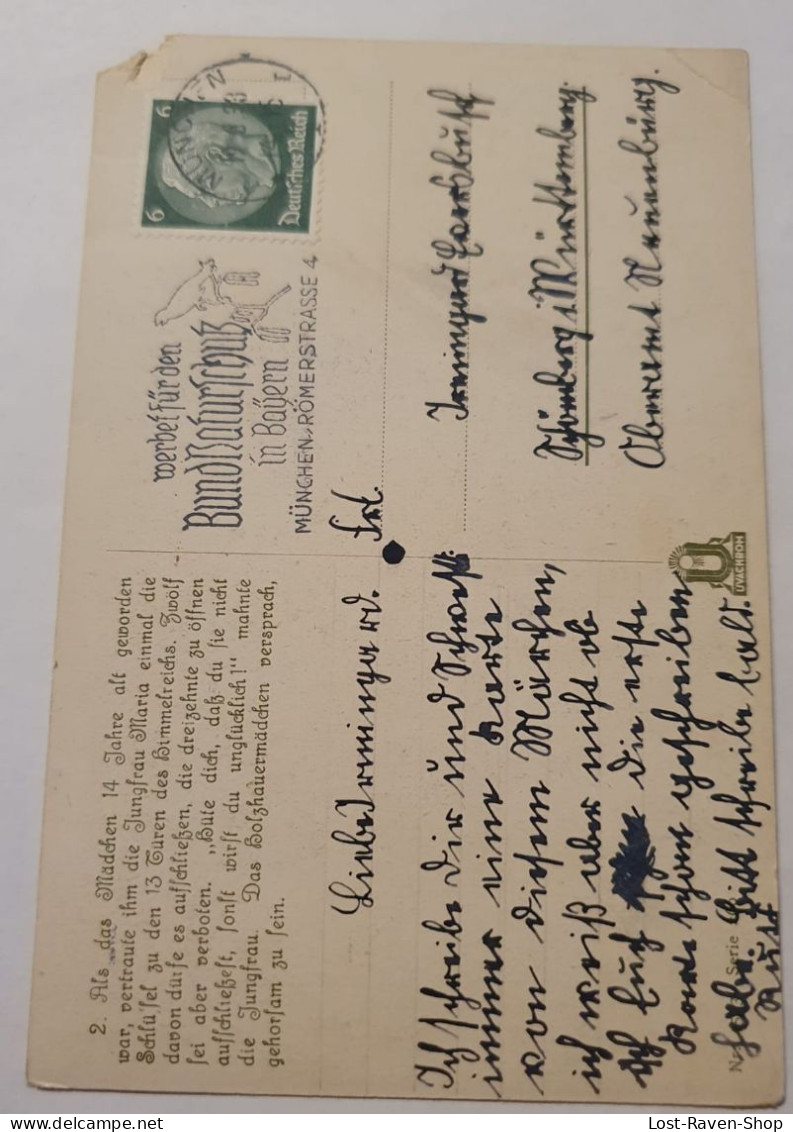 2. Als das Mädchen 14 Jahre alt geworden
war, vertraute ihm die Jungfrau Maria einmal die
Schlüssel zu den 13 Türen des Himmelreichs. Zwölf
davon dürfe es aufschließen, die dreizehnte zu öffnen
sei aber verboten. „Hüte dich, daß du sie nicht
aufschließest, sonst wirst du unglücklich!" mahnte
die Jungfrau. Das Holzhauermädchen versprach,
gehorsam zu sein.
Liebe Irmingard.
Ich schreibe Dir und Schwest.
immer eine Karte
von diesem Märchen,
ich weiß aber nicht ob
ich Euch die erste
Karte schon geschrieben
habe. Bitt schreibe bald.
Serie
UVACHROM
MÜNCHEN
6 6
Deutsches Reich
werbet für den
Bund Naturschutz
in Bayern
MÜNCHEN, RÖMERSTRASSE 4
Frl.
Irmingard
Schömberg i. Württemberg.
Oberamt Neuenbürg.
Lost-Raven-Shop